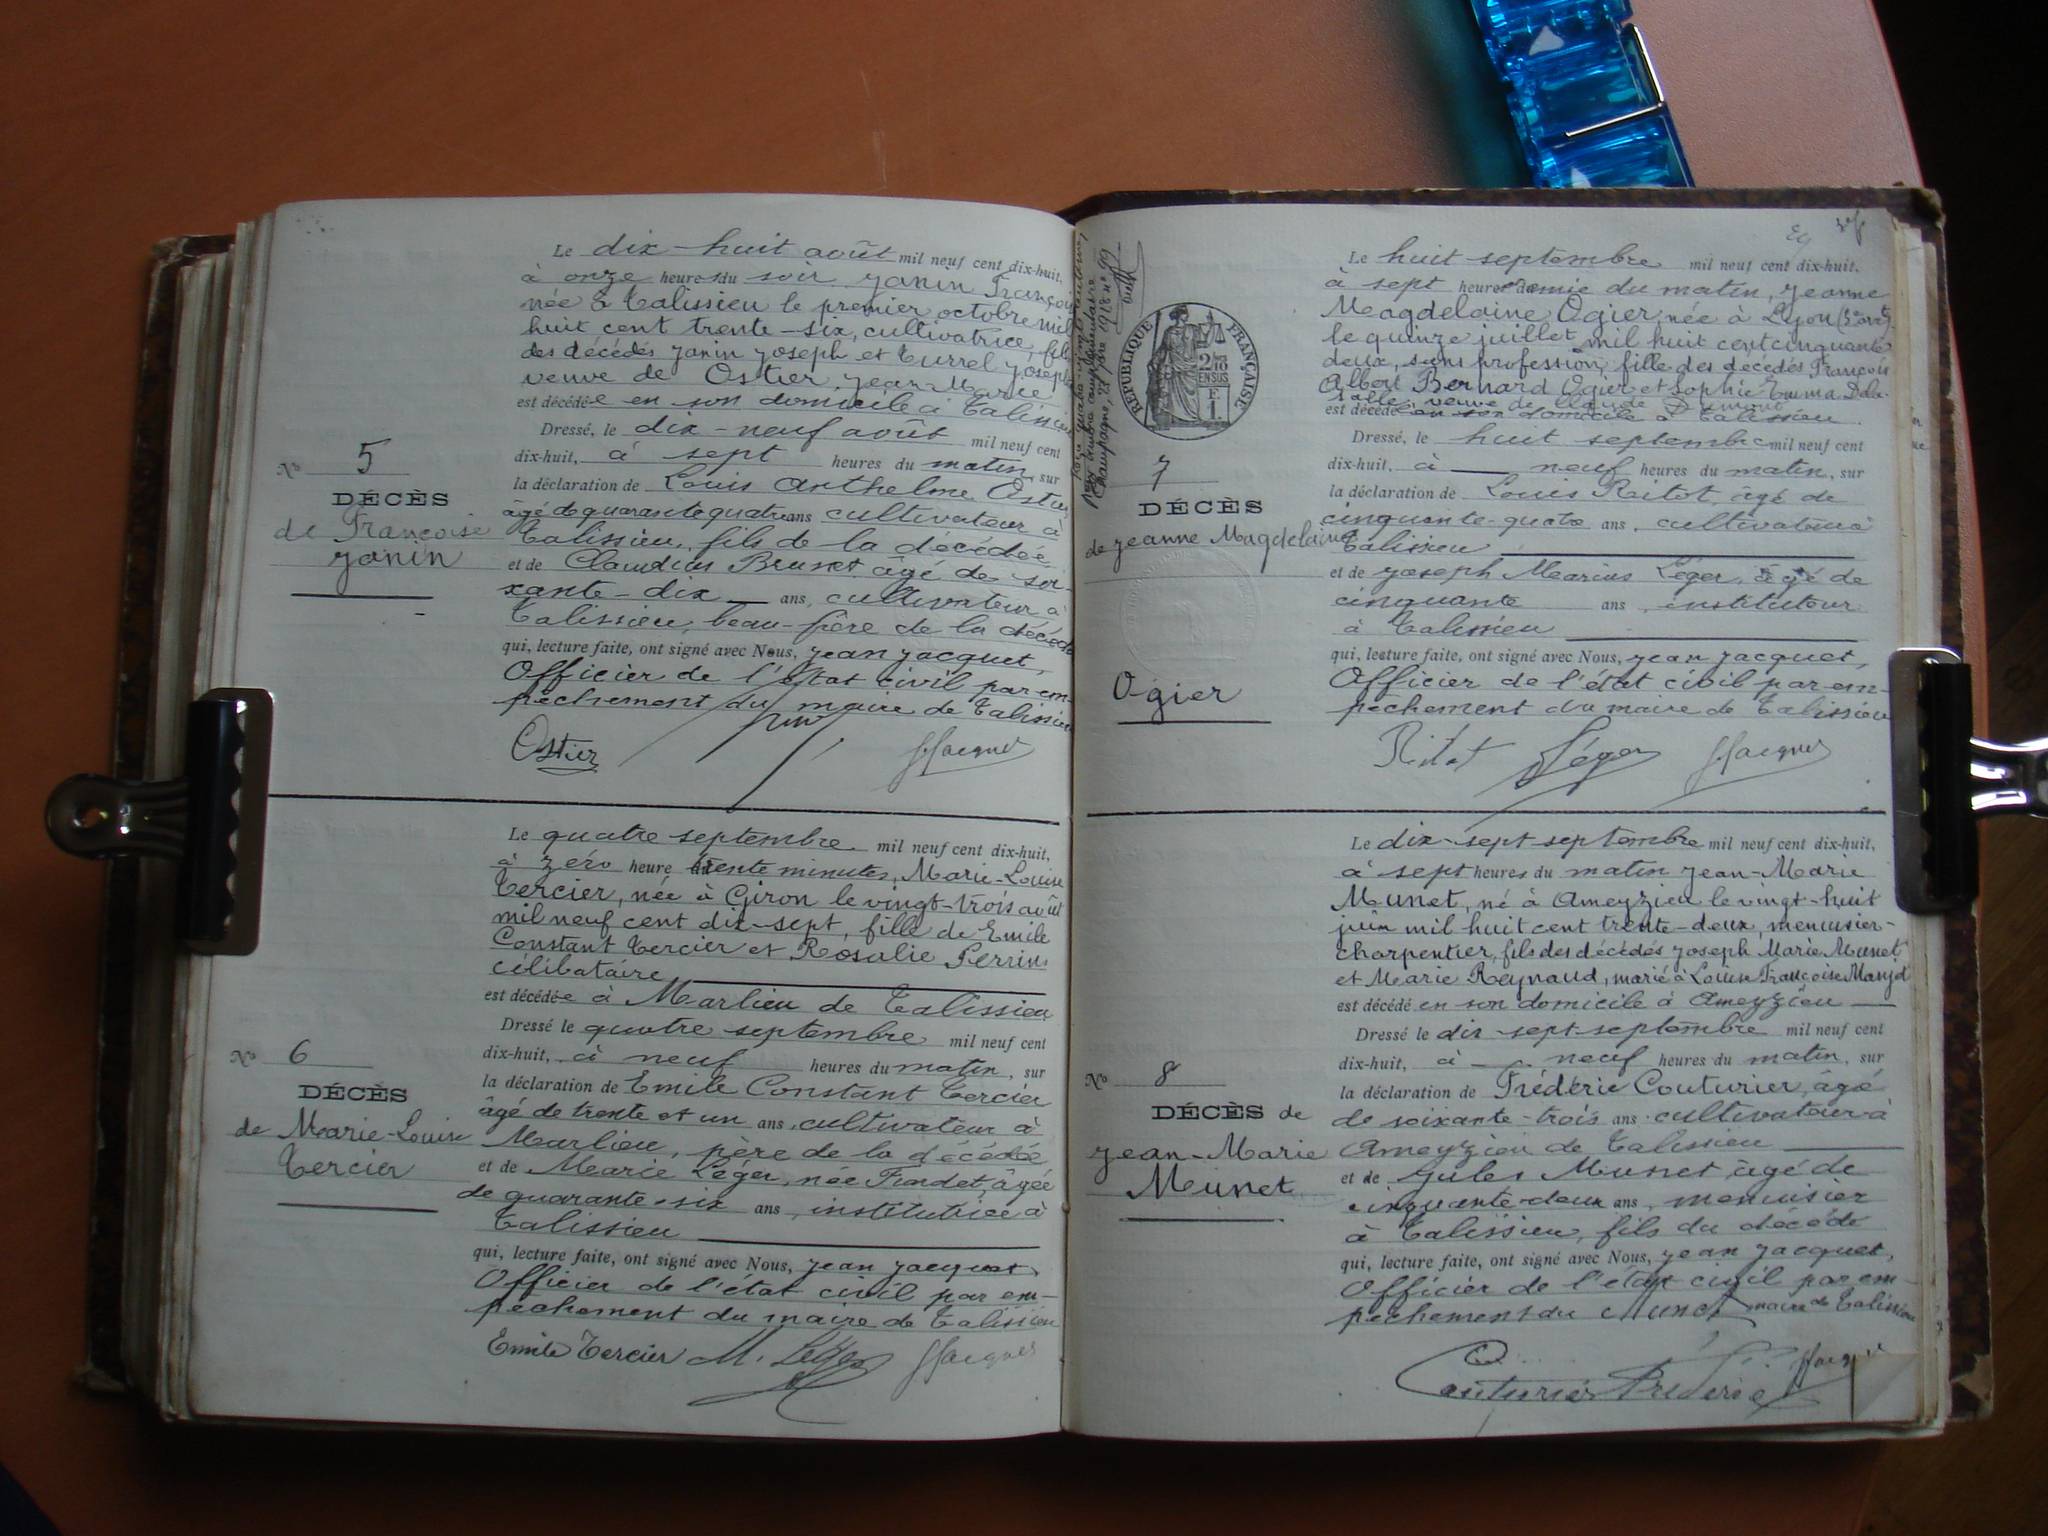 Le dix-huit août mil neuf cent dix-huit,
à onze heures du soir Janin Françoise
née à Talissieu le premier octobre mil
huit cent trente-six, cultivatrice, fille
des décédés Janin Joseph et Turrel Josephte
veuve de Ostier Jean-Marie
est décédée en son domicile à Talissieu
Dressé, le dix-neuf août mil neuf cent
dix-huit, à sept heures du matin, sur
la déclaration de Louis Anthelme Ostier
âgé de quarante quatre ans cultivateur à
Talissieu, fils de la décédée
et de Claudius Brunet âgé de soi-
xante-dix ans, cultivateur à
Talissieu, beau-frère de la décédée
qui, lecture faite, ont signé avec Nous, Jean Jacquet,
Officier de l'état civil par em-
pêchement du maire de Talissieu
Ostier JJacquet
No 5
DÉCÈS
de Françoise
Janin
Le quatre septembre mil neuf cent dix-huit,
à zéro heure trente minutes, Marie-Louise
Tercier, née à Giron le vingt-trois août
mil neuf cent dix-sept, fille de Emile
Constant Tercier et Rosalie Perrin
célibataire
est décédée à Marlieu de Talissieu
Dressé le quatre septembre mil neuf cent
dix-huit, à neuf heures du matin, sur
la déclaration de Emile Constant Tercier
âgé de trente et un ans, cultivateur à
Marlieu, père de la décédée
et de Marie Léger, née Fiardet, âgée
de quarante-six ans, institutrice à
Talissieu
qui, lecture faite, ont signé avec Nous, Jean Jacquet,
Officier de l'état civil par em-
pêchement du maire de Talissieu
Emile Tercier M. Léger JJacquet
No 6
DÉCÈS
de Marie-Louise
Tercier
RÉPUBLIQUE FRANÇAISE
2/10
EN SUS
1 F
Le huit septembre mil neuf cent dix-huit,
à sept heures demie du matin, Jeanne
Magdelaine Ogier née à Lyon (3e arrt).
le quinze juillet mil huit cent cinquante
deux, sans profession, fille des décédés François
Albert Bernard Ogier et Sophie Emma Dela-
salle, veuve de Claude
est décédée en son domicile à Talissieu
Dressé, le huit septembre mil neuf cent
dix-huit, à neuf heures du matin, sur
la déclaration de Louis Ritot, âgé de
cinquante-quatre ans, cultivateur à
Talissieu
et de Joseph Marius Léger, âgé de
cinquante ans, instituteur
à Talissieu
qui, lecture faite, ont signé avec Nous, Jean Jacquet,
Officier de l'état civil par em-
pêchement du maire de Talissieu
Ritot Léger JJacquet
7
DÉCÈS
de Jeanne Magdelaine
Ogier
Le dix-sept septembre mil neuf cent dix-huit,
à sept heures du matin Jean-Marie
Munet, né à Ameyzieu le vingt-huit
juin mil huit cent trente-deux, menuisier-
charpentier, fils des décédés Joseph Marie Munet
et Marie Reynaud, marié à Louise Françoise Manjot
est décédé en son domicile à Ameyzieu
Dressé le dix sept septembre mil neuf cent
dix-huit, à neuf heures du matin, sur
la déclaration de Frédéric Couturier, âgé
de soixante-trois ans cultivateur à
Ameyzieu de Talissieu
et de Jules Munet, âgé de
cinquante-deux ans, menuisier
à Talissieu, fils du décédé
qui, lecture faite, ont signé avec Nous, Jean Jacquet,
Officier de l'état civil par em-
pêchement du maire de Talissieu
Munet
Couturier Frédéric JJacquet
No 8
DÉCÈS de
Jean-Marie
Munet